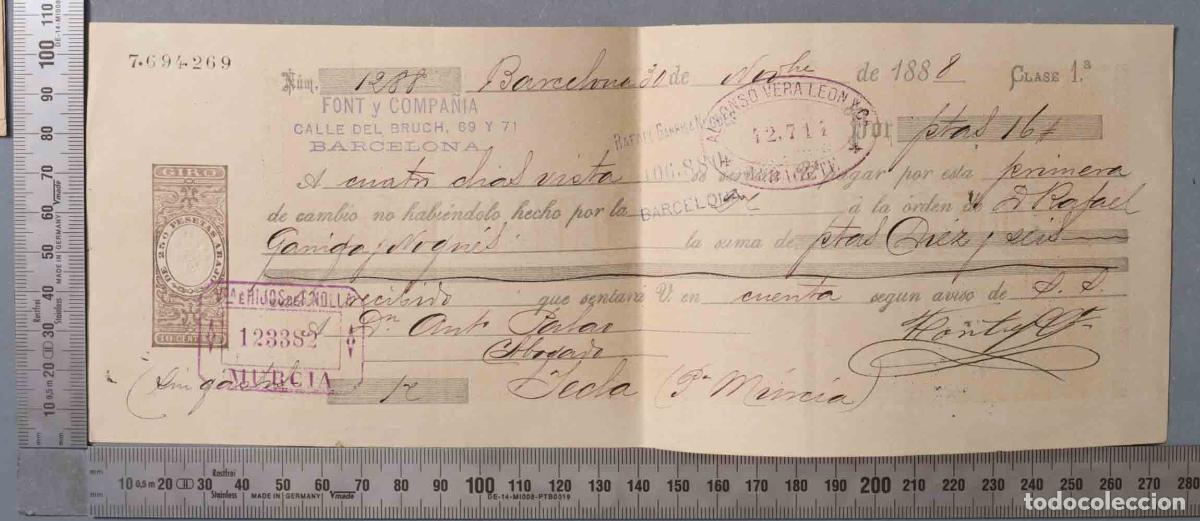 7·694·269
Núm. 1288 Barcelona 30 de Novbre de 1888 CLASE 1.ª
FONT y COMPAÑIA
CALLE DEL BRUCH, 69 Y 71
BARCELONA
ALFONSO VERA LEON Y Cª
12.714
ALBACETE
106.880
BARCELONA
Por ptas 16
A cuatro dias vista se servirá V. pagar por esta primera
de cambio no habiéndolo hecho por la á la órden de D Rafael
Garriga y Nogués la suma de ptas Diez y seis
recibido que sentará V. en cuenta segun aviso de S. S.
GIRO
DE 250 PESETAS ABAJO
10 CENT
E HIJOS DE P. NOLLA
123382
MURCIA
A Dn Antº Palao
Abogado
Font y Cª
(Sin gastos) Yecla (Pª Múrcia)
mm
10 0,5 m 20 30 40 50 60 70 80 90 100 110
Rostfrei
Stainless
MADE IN GERMANY
Vmade
DE-14-MI008-PTB0019
10 0,5 m 20 30 40 50 60 70 80 90 100 110 120 130 140 150 160 170 180 190 200 210 220 230 240 250 260 270 280
todocoleccion